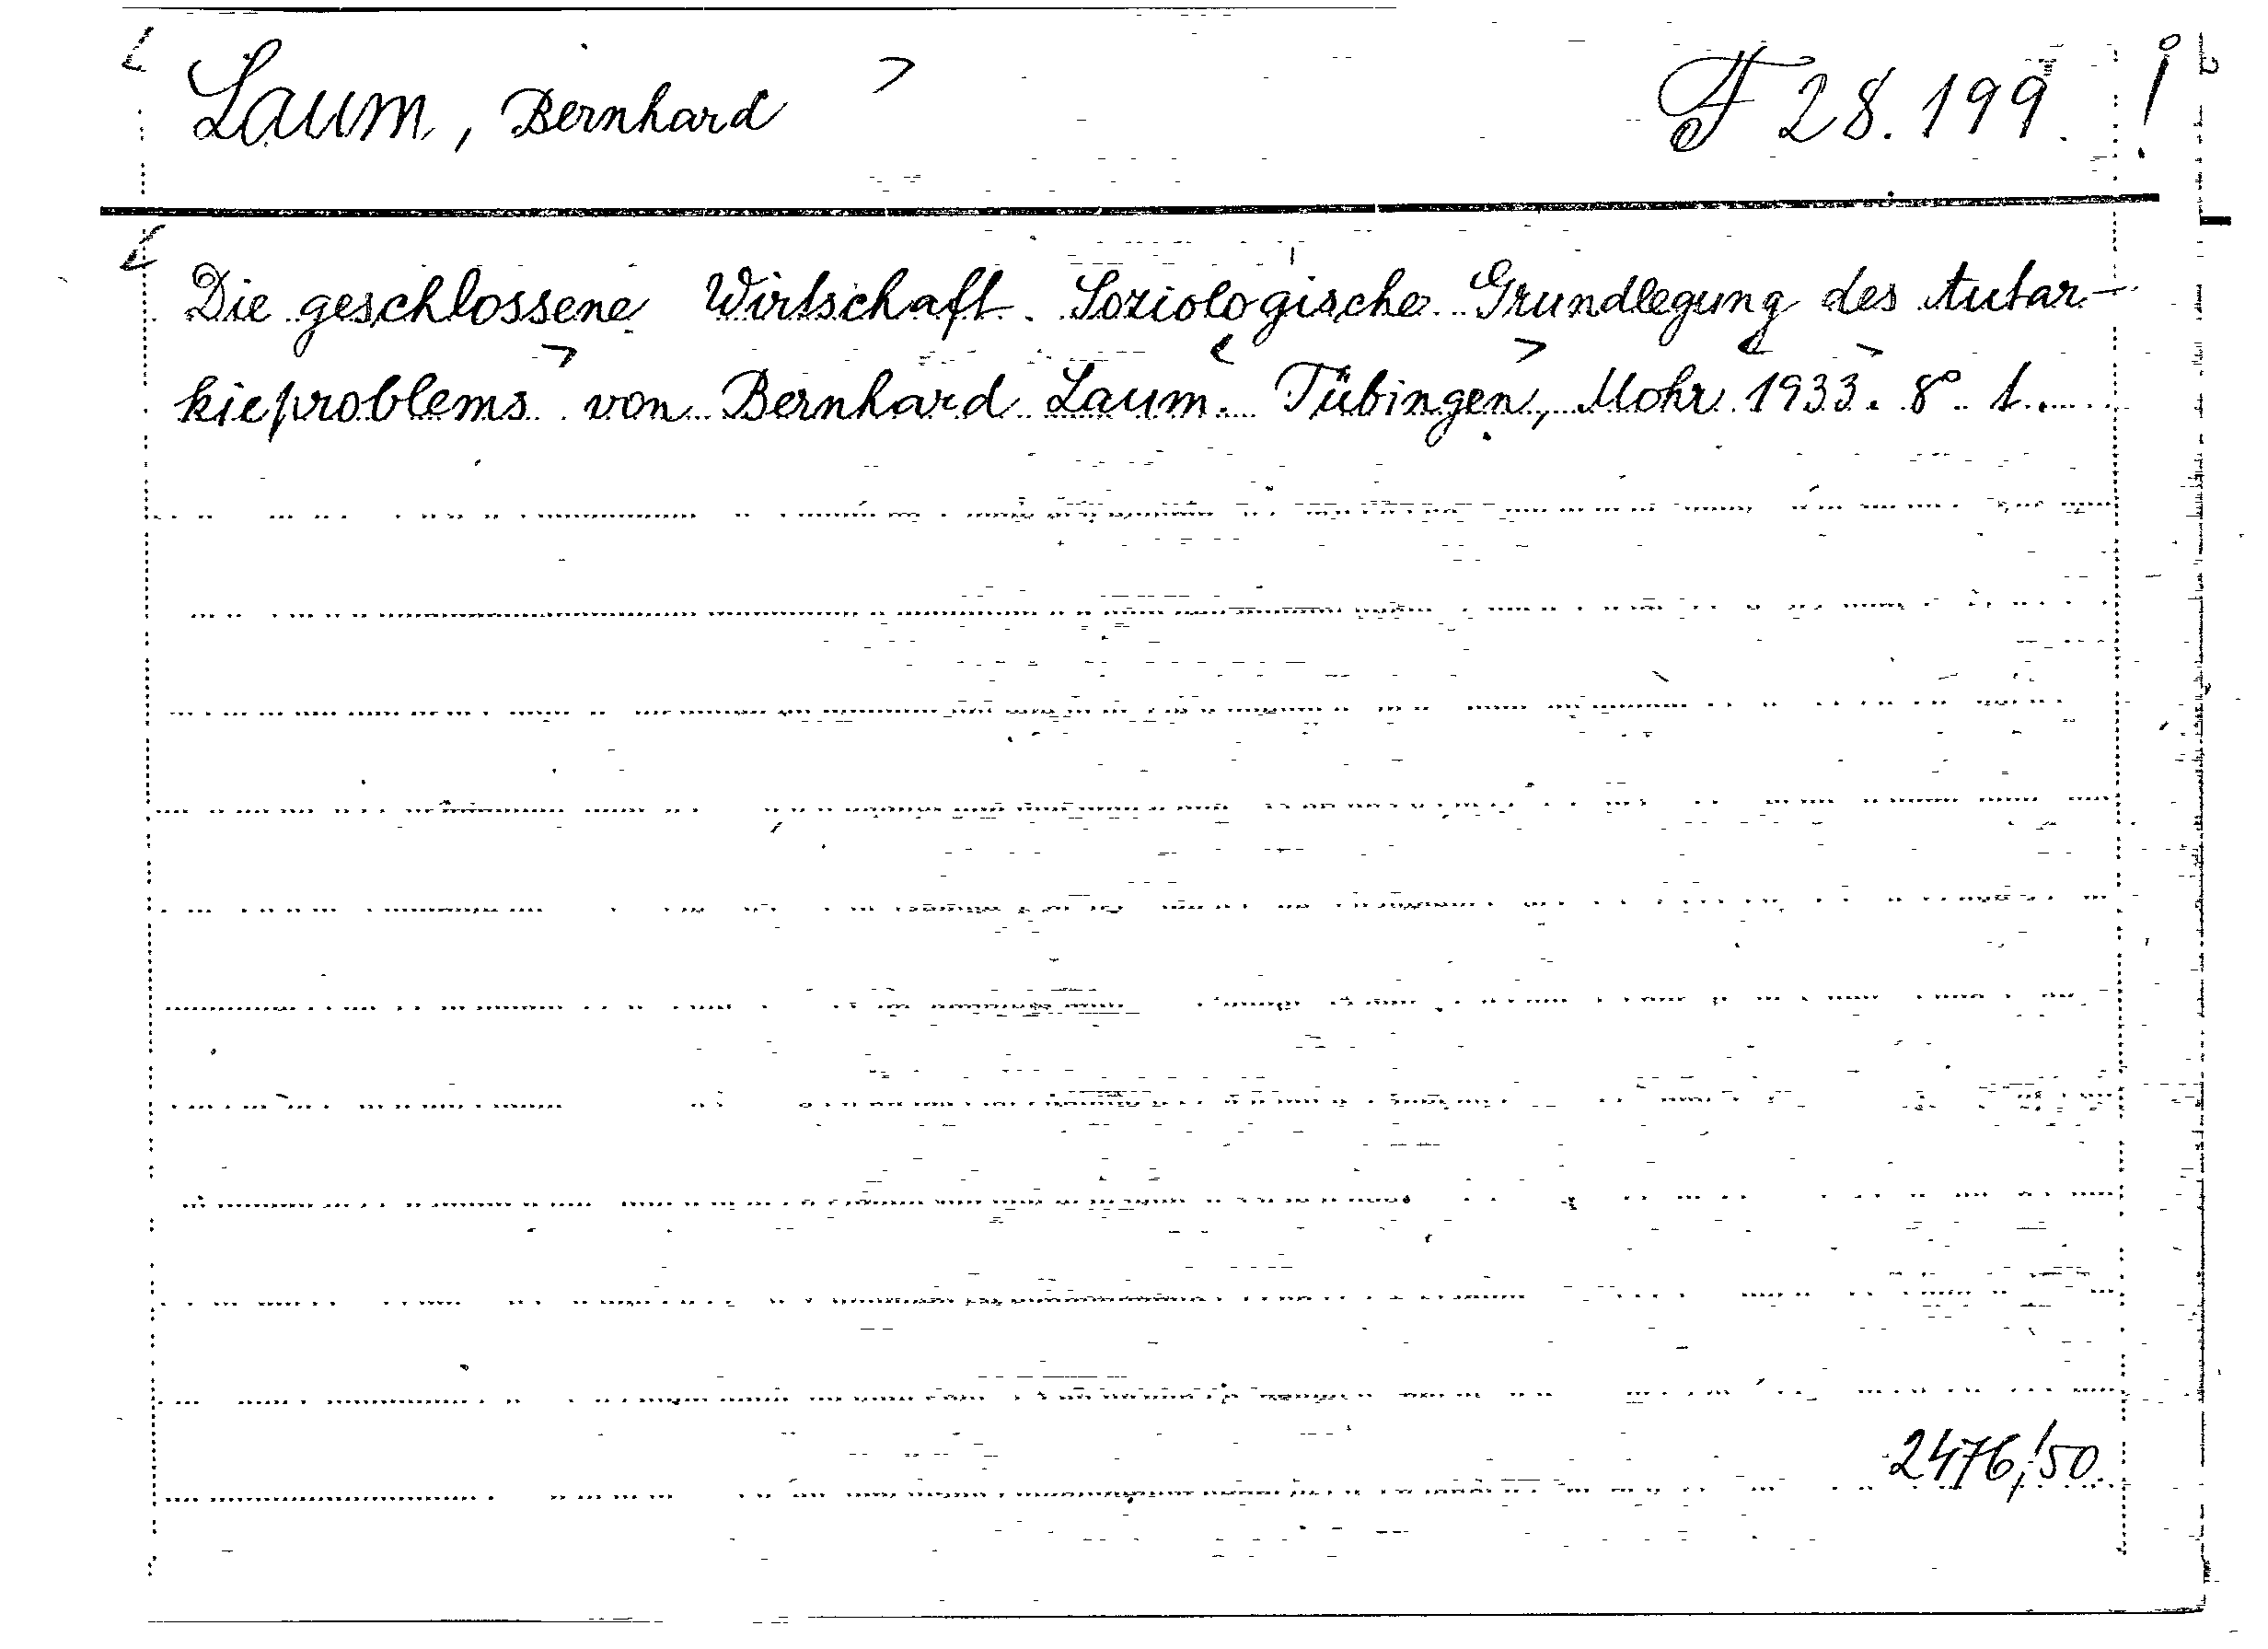 Laum, Bernhard F 28.199.
Die geschlossene Wirtschaft. Soziologische Grundlegung des Autar-
kieproblems von Bernhard Laum. Tübingen, Mohr 1933. 8° 1.
2476,50.